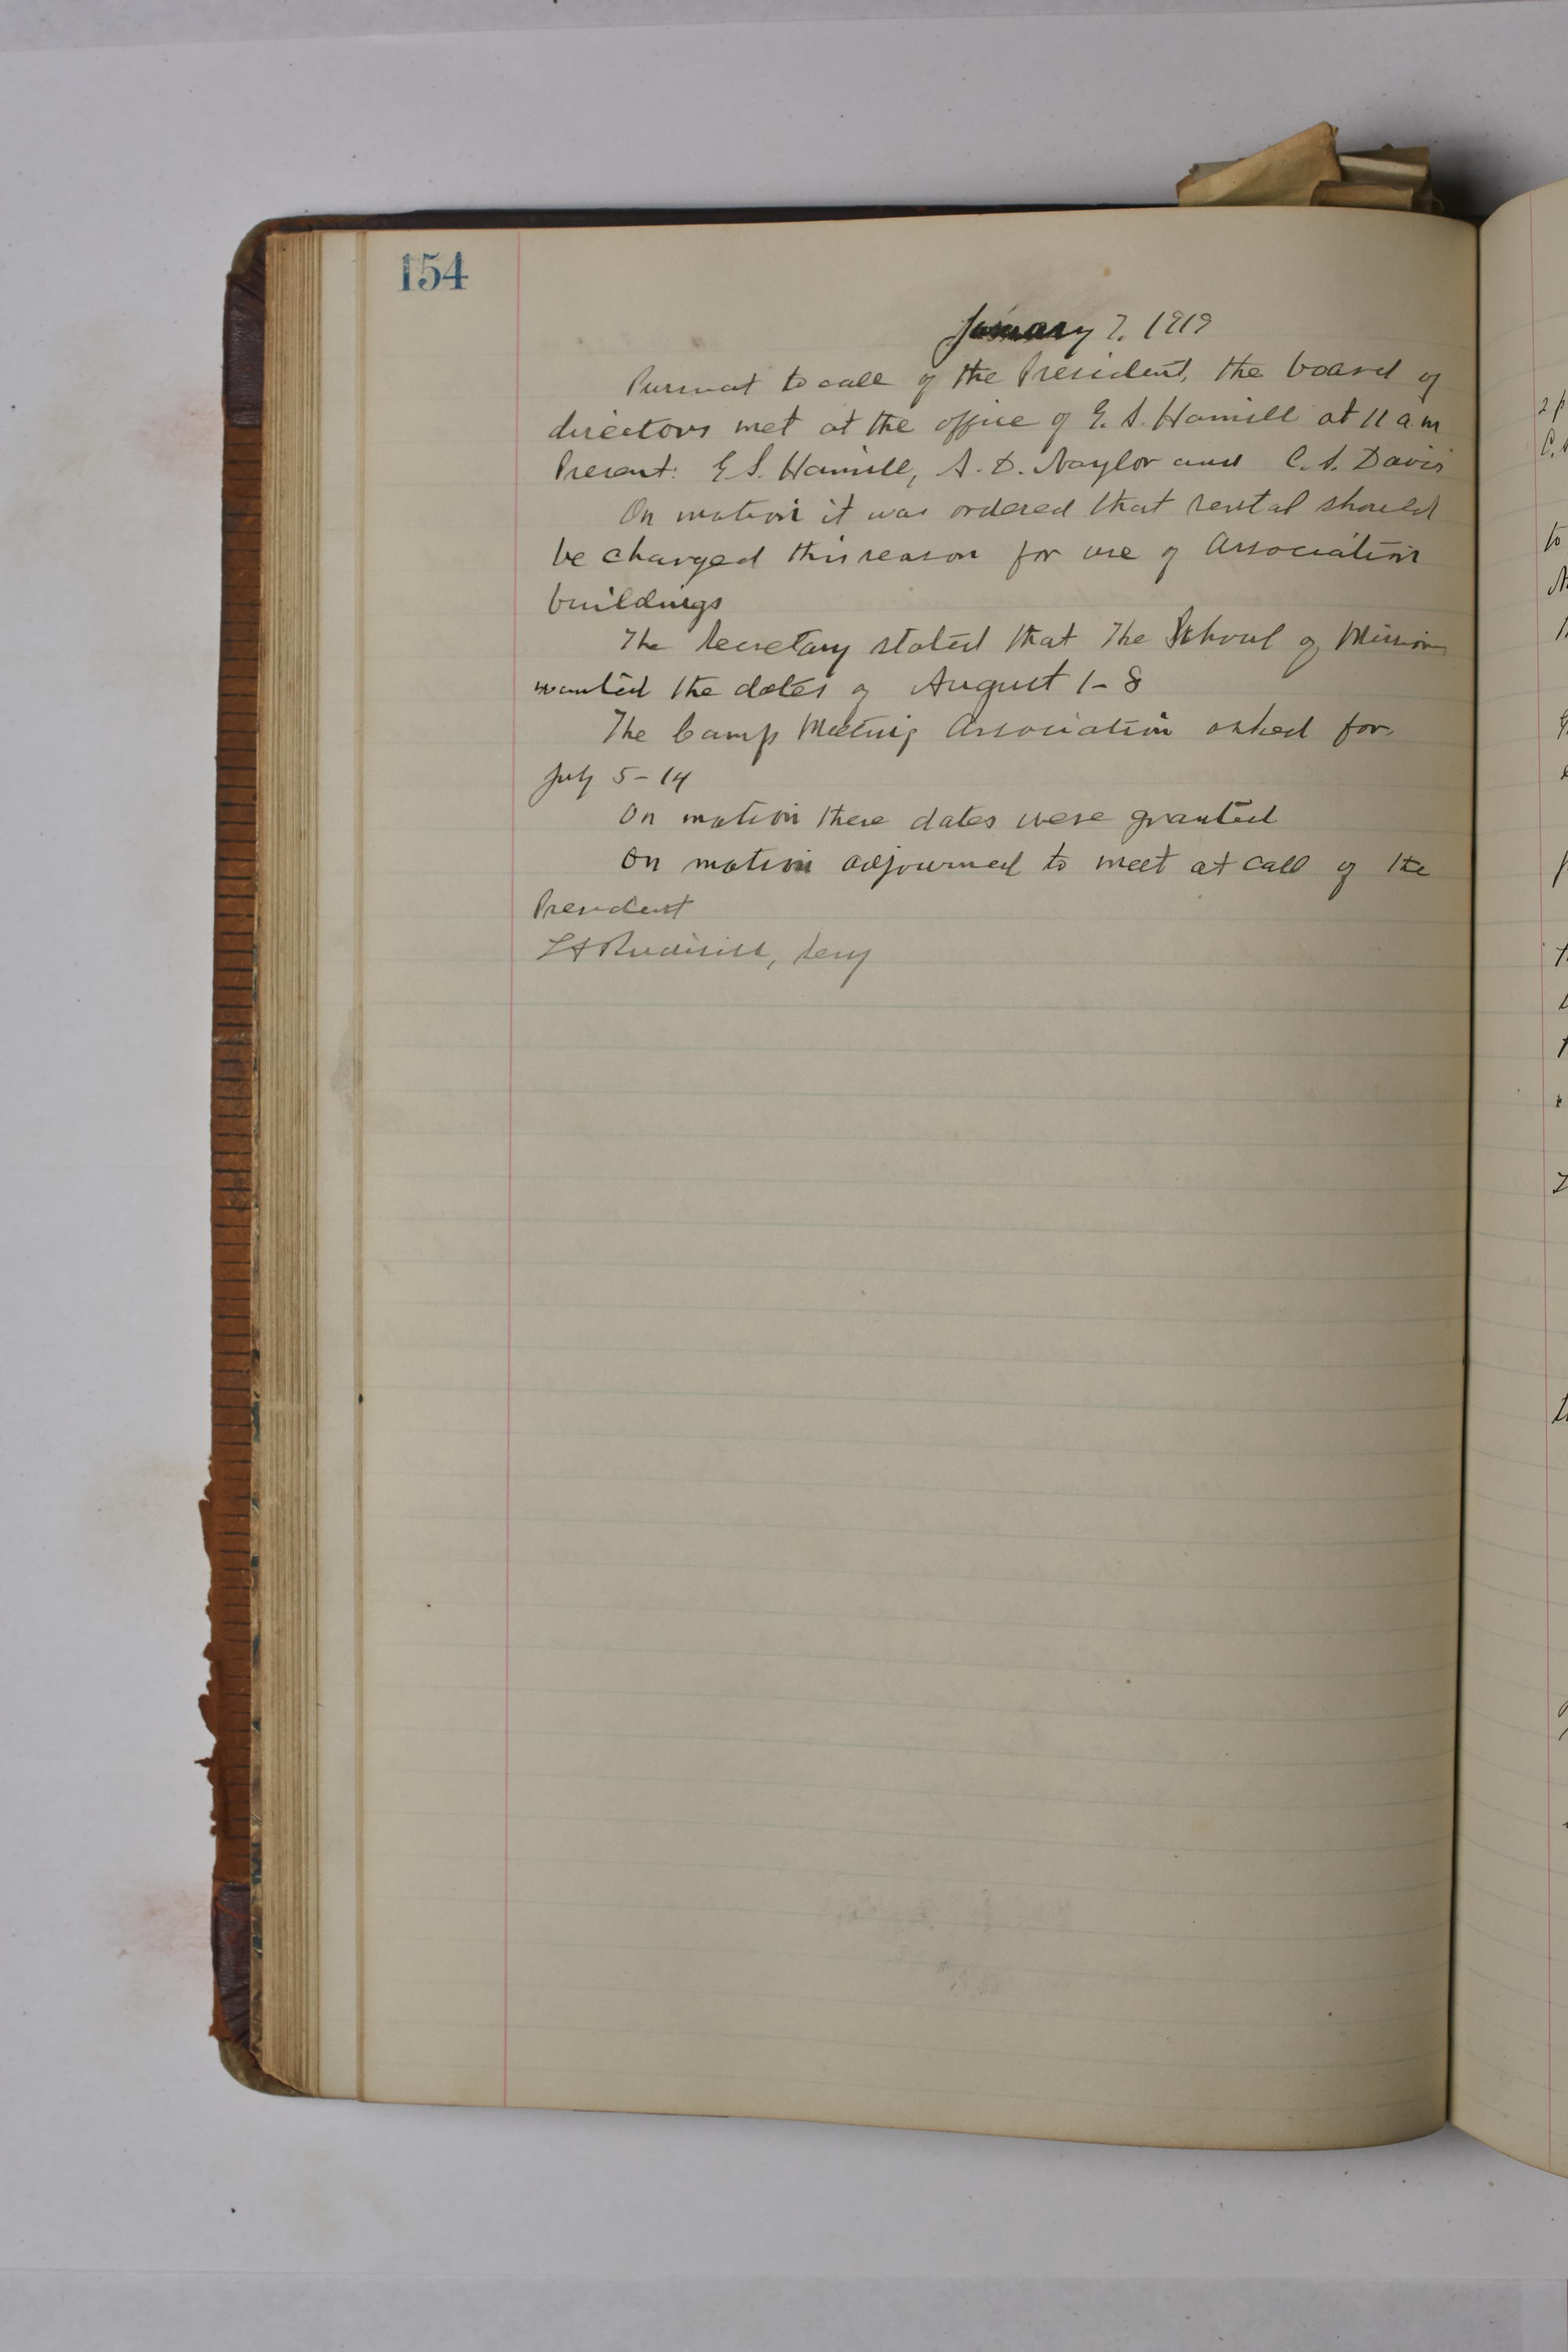 154
January 7, 1919
Pursuat to call of the President, the board of
directors met at the office of E. S. Hamill at 11 a.m
Present: E S. Hamill, S. D. Naylor and C. S. Davis
On motion it was ordered that rental should
be charged this season for use of Association
buildings
The Secretary stated that The School of Missions
wanted the dates of August 1-8
The Camp Meeting Association asked for
July 5-14
On motion these dates were granted
On motion adjourned to meet at call of the
President
Secy